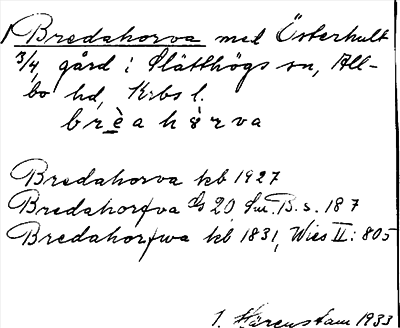 Bredahorva med Österhult
3/4, gård i Slätthögs sn, All-
bo hd, Krbs l.
brèa hòrva
Bredahorva kb 1927
Bredahor/va GS 20, Sm. B. s. 187
Bredahor/wa kb 1831, Wies II: 805
I. Härenstam 1933